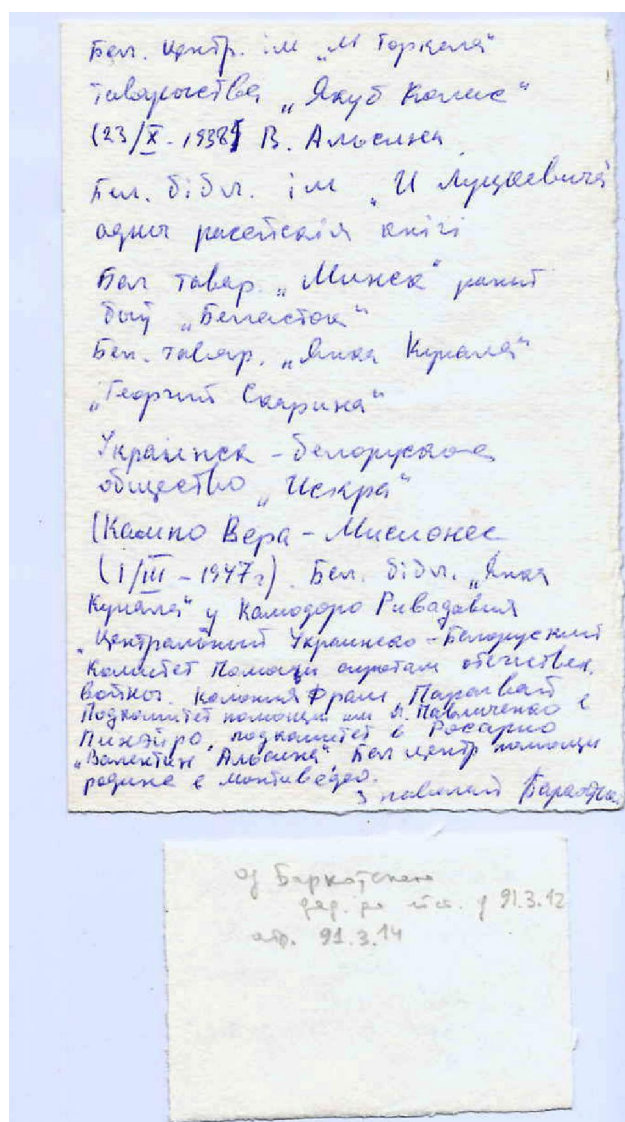 Бел. Центр. ім „М Горкага"
Таварыства „Якуб Колас"
(23/X - 1938) В. Альсина
Бел. бібл. ім „И Луцкевича"
адны расейскія кнігі
Бел товар. „Минск" раней
быў „Беласток"
Бел. товар. „Янка Купала"
„Георгий Скарина"
Украинск - белоруское
общество „Искра"
(Кампо Вера - Мисионес
(1/III - 1947 г). Бел. бібл. „Янка
Купала" у Камодоро Ривадавия
„Центральный Украинско - Белоруский
Комитет Помощи сиротам отечествен.
войны. Колония Фрам, Парагвай
Подкомитет помощи им Л. Павличенко в
Пинэйро, подкомитет в Росарио
„Валентин Альсина", Бел центр помощи
родине в Монтивидео.
З павагай
од
у 91.3.12
атр. 91.3.14